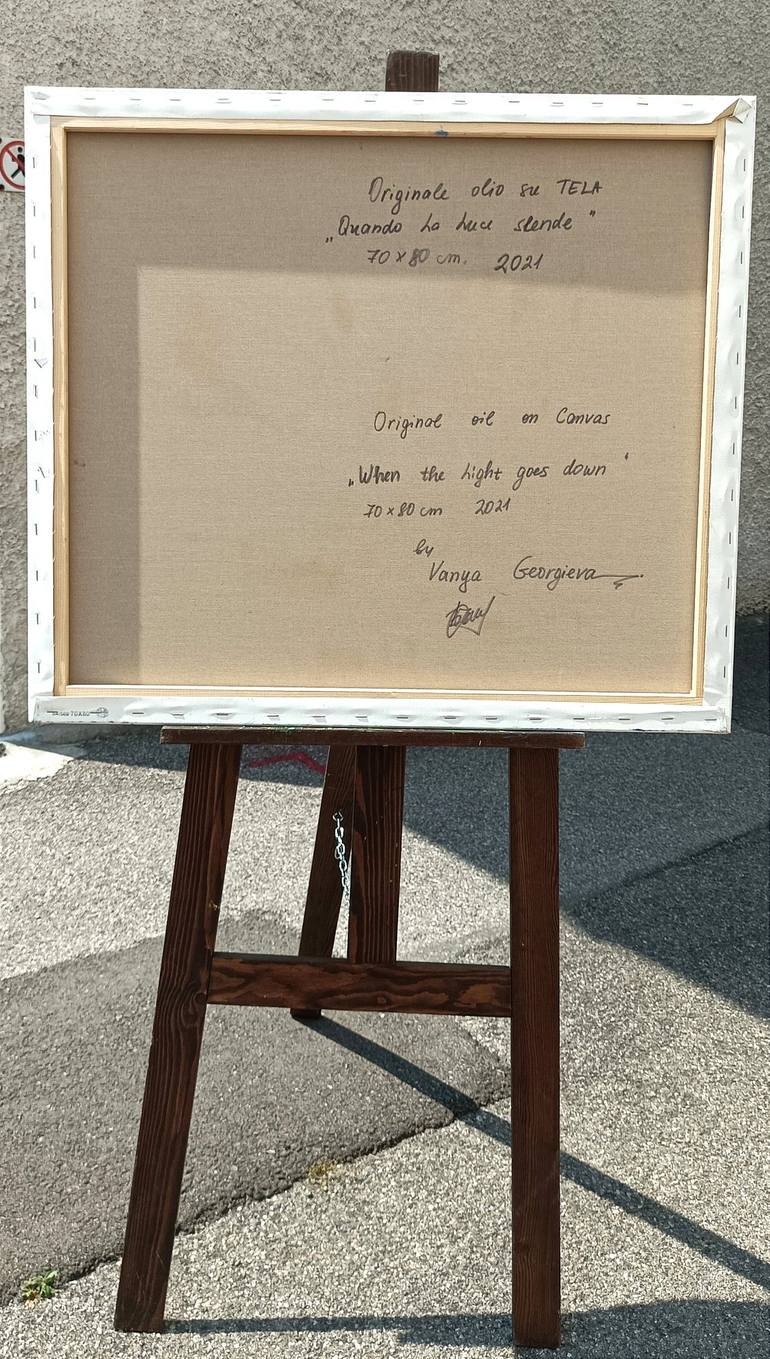 Originale olio su TELA
„Quando La Luce slende"
70 x 80 cm. 2021
Original oil on Canvas
„When the Light goes down"
70 x 80 cm 2021
by
Vanya Georgieva